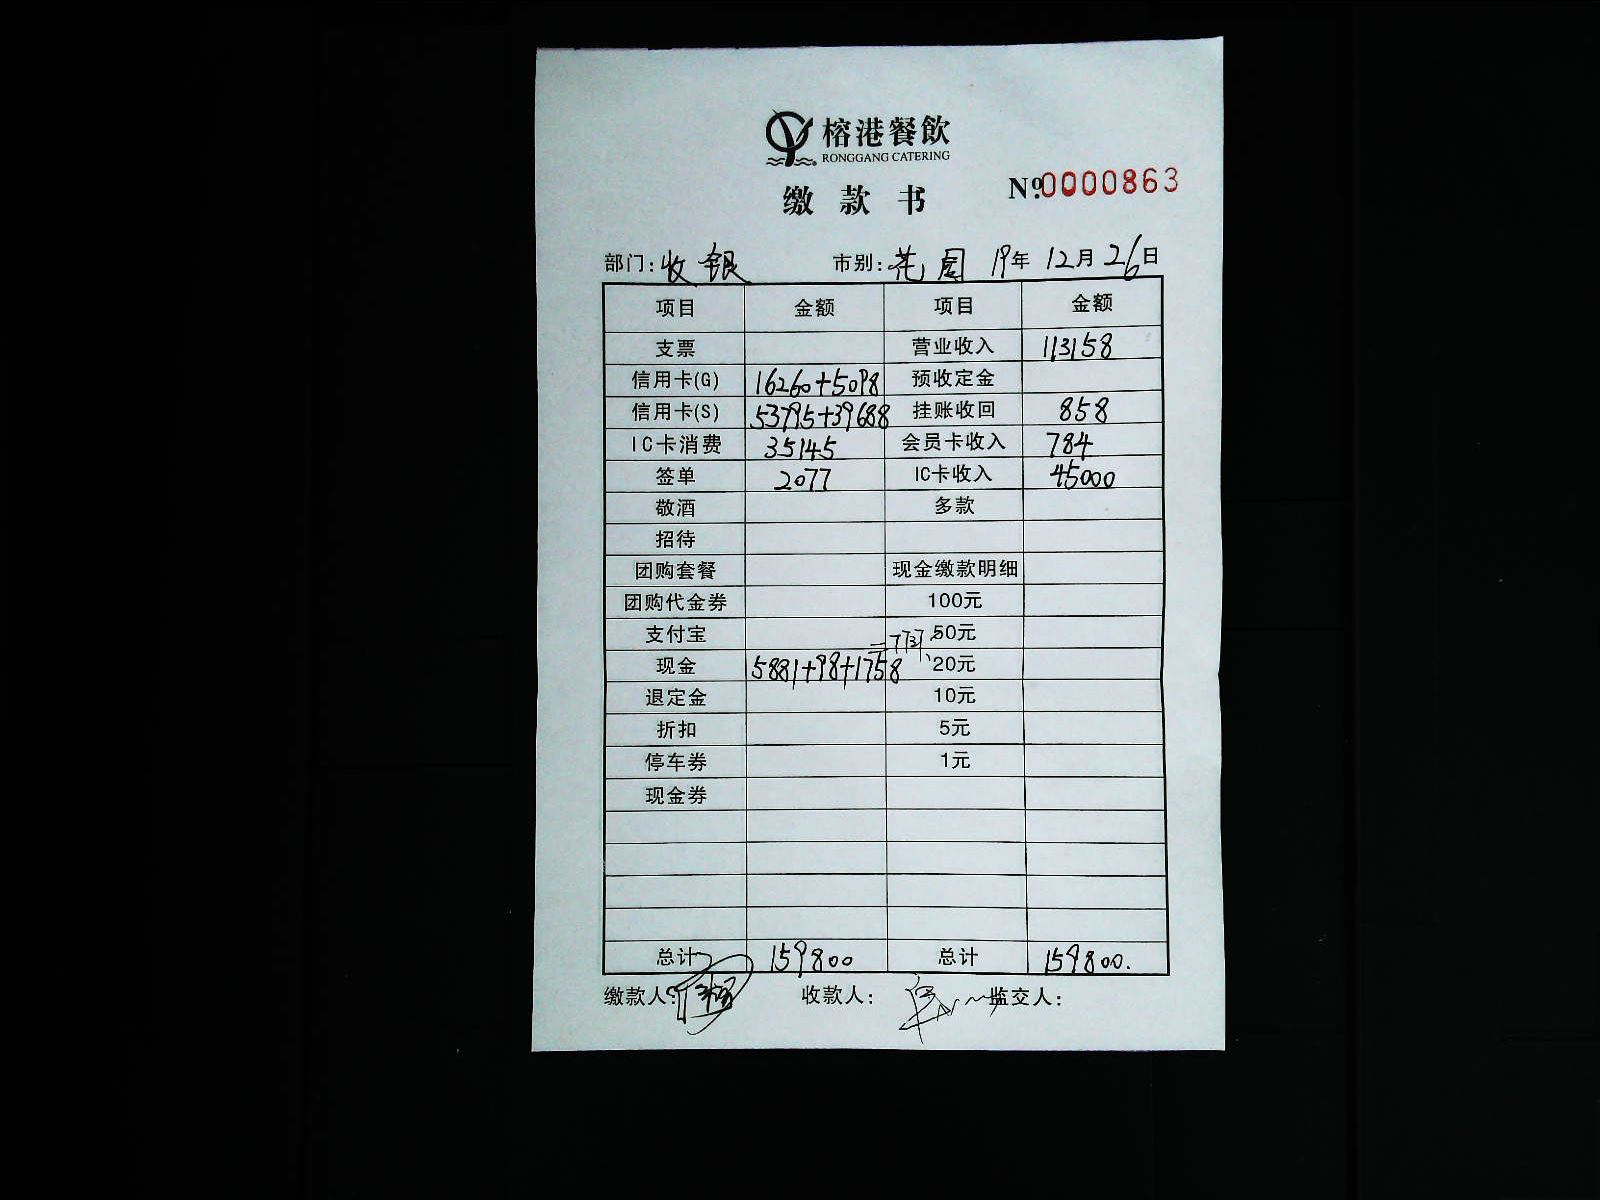 榕港餐飲
RONGGANG CATERING
缴款书 №0000863
部门：收银 市别：花园 19年12月26日
项目 金额 项目 金额
支票 营业收入 113158
信用卡(G) 16260+5098 预收定金
信用卡(S) 53795+39688 挂账收回 858
IC卡消费 35145 会员卡收入 784
签单 2077 IC卡收入 45000
敬酒 多款
招待
团购套餐 现金缴款明细
团购代金券 100元
支付宝 50元
=7737
现金 5881+98+1758 20元
退定金 10元
折扣 5元
停车券 1元
现金券
总计 159800 总计 159800.
缴款人： 收款人： 监交人：